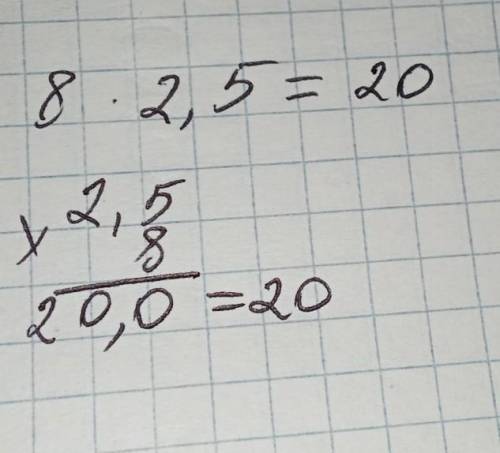 8 · 2,5 = 20
2,5
× 8
20,0 = 20